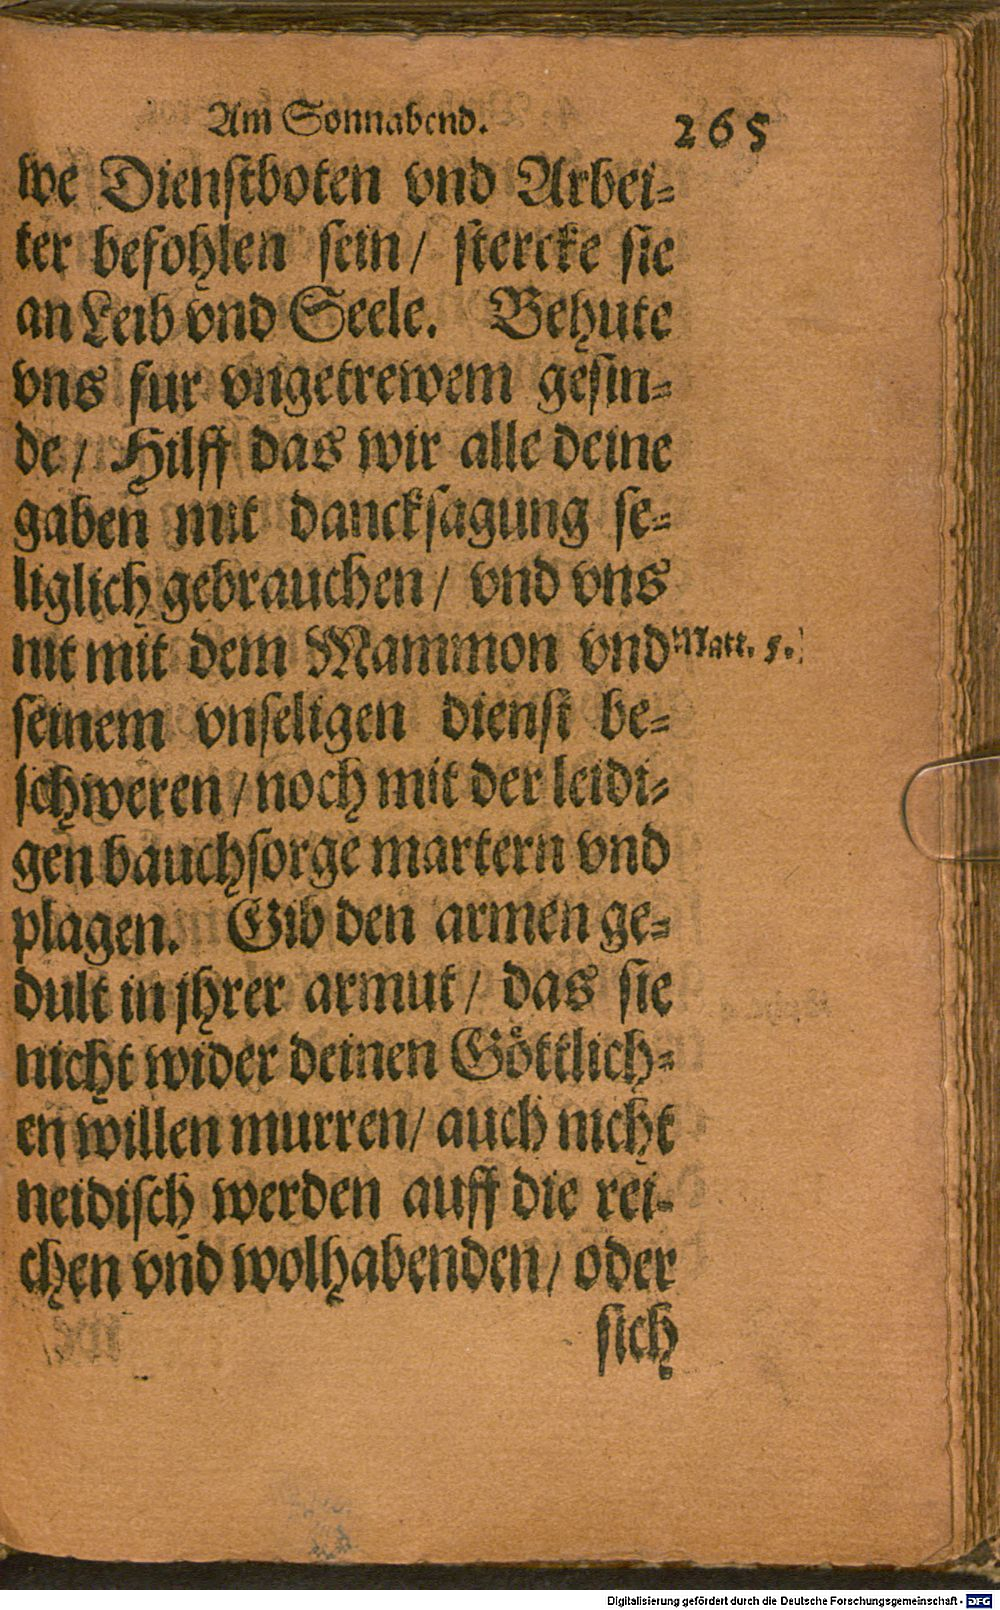 Am Sonnabend. 265
we Dienstboten vnd Arbei-
ter befohlen sein/ stercke sie
an Leib vnd Seele. Behute
vns fur vngetrewem gesin-
de/ Hilff das wir alle deine
gaben mit dancksagung se-
liglich gebrauchen/ vnd vns
nit mit dem Mammon vnd Matt. 5.
seinem vnseligen dienst be-
schweren/ noch mit der leidi-
gen bauchsorge martern vnd
plagen. Gib den armen ge-
dult in jhrer armut/ das sie
nicht wider deinen Göttlich-
en willen murren/ auch nicht
neidisch werden auff die rei-
chen vnd wolhabenden/ oder
sich
Digitalisierung gefördert durch die Deutsche Forschungsgemeinschaft - DFG